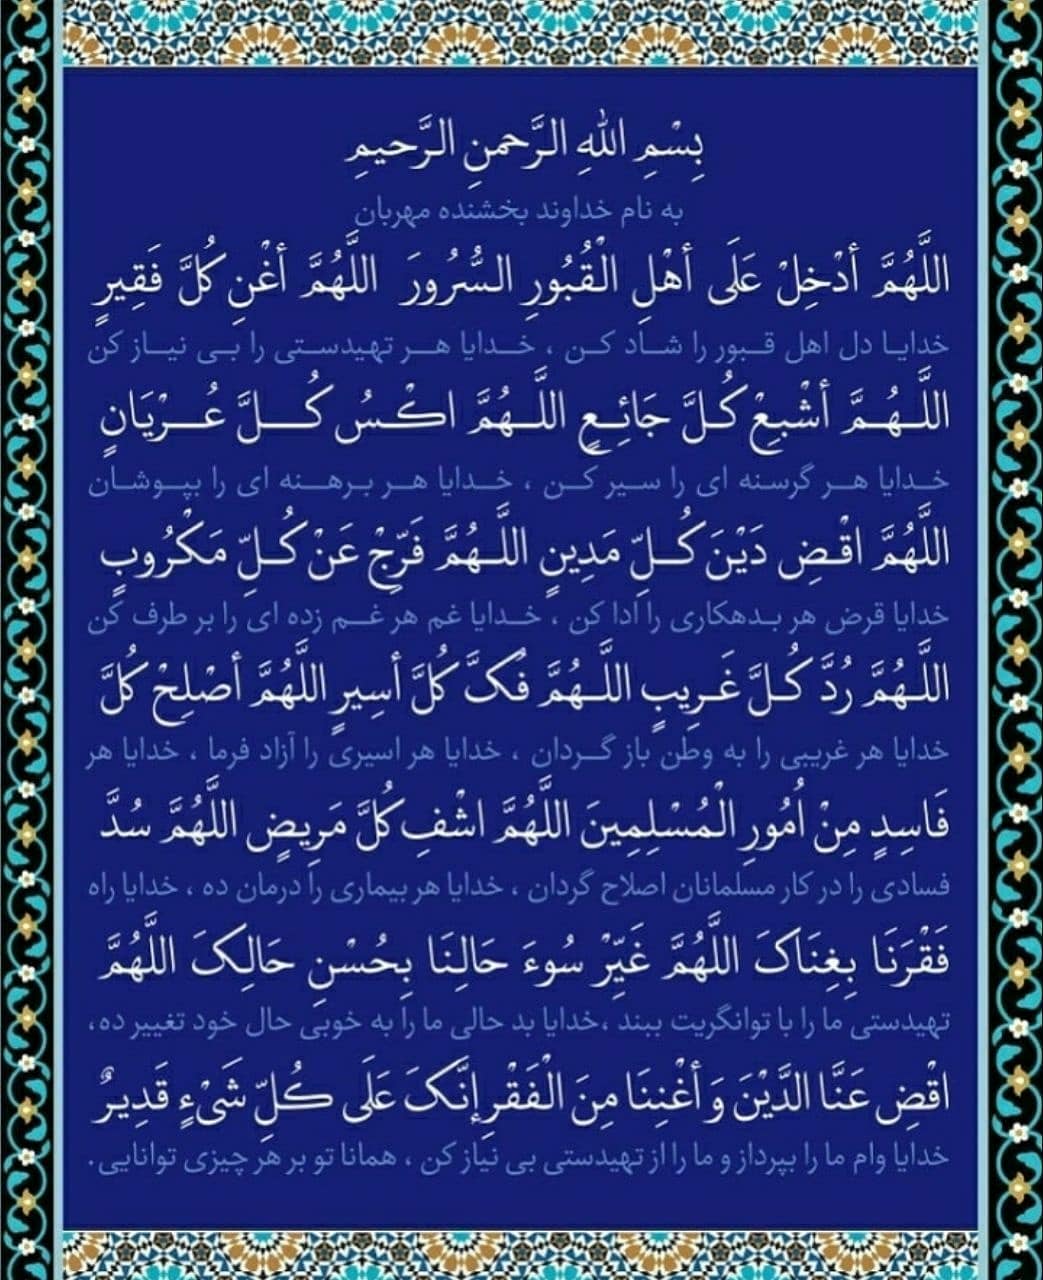 بِسْمِ اللهِ الرَّحمنِ الرَّحیمِ
به نام خداوند بخشنده مهربان
اللَّهُمَّ أدْخِلْ عَلَى أهْلِ الْقُبُورِ السُّرُورَ اللَّهُمَّ أغْنِ كُلَّ فَقِیرٍ
خدایا دل اهل قبور را شاد کن ، خدایا هر تهیدستی را بی نیاز کن
اللَّهُمَّ أشْبِعْ كُلَّ جَائِعٍ اللَّهُمَّ اكْسُ كُلَّ عُرْیَانٍ
خدایا هر گرسنه ای را سیر کن ، خدایا هر برهنه ای را بپوشان
اللَّهُمَّ اقْضِ دَیْنَ كُلِّ مَدِینٍ اللَّهُمَّ فَرِّجْ عَنْ كُلِّ مَكْرُوبٍ
خدایا قرض هر بدهکاری را ادا کن ، خدایا غم هر غم زده ای را بر طرف کن
اللَّهُمَّ رُدَّ كُلَّ غَرِیبٍ اللَّهُمَّ فُکَّ كُلَّ أسِیرٍ اللَّهُمَّ أصْلِحْ كُلَّ
خدایا هر غریبی را به وطن باز گردان ، خدایا هر اسیری را آزاد فرما ، خدایا هر
فَاسِدٍ مِنْ اُمُورِ الْمُسْلِمِینَ اللَّهُمَّ اشْفِ كُلَّ مَرِیضٍ اللَّهُمَّ سُدَّ
فسادی را در کار مسلمانان اصلاح گردان ، خدایا هر بیماری را درمان ده ، خدایا راه
فَقْرَنَا بِغِنَاکَ اللَّهُمَّ غَیِّرْ سُوءَ حَالِنَا بِحُسْنِ حَالِکَ اللَّهُمَّ
تهیدستی ما را با توانگریت ببند ،خدایا بد حالی ما را به خوبی حال خود تغییر ده،
اقْضِ عَنَّا الدَّیْنَ وَ أغْنِنَا مِنَ الْفَقْرِ إنَّکَ عَلَى كُلِّ شَیْءٍ قَدِیرٌ
خدایا وام ما را بپرداز و ما را از تهیدستی بی نیاز کن ، همانا تو بر هر چیزی توانایی.